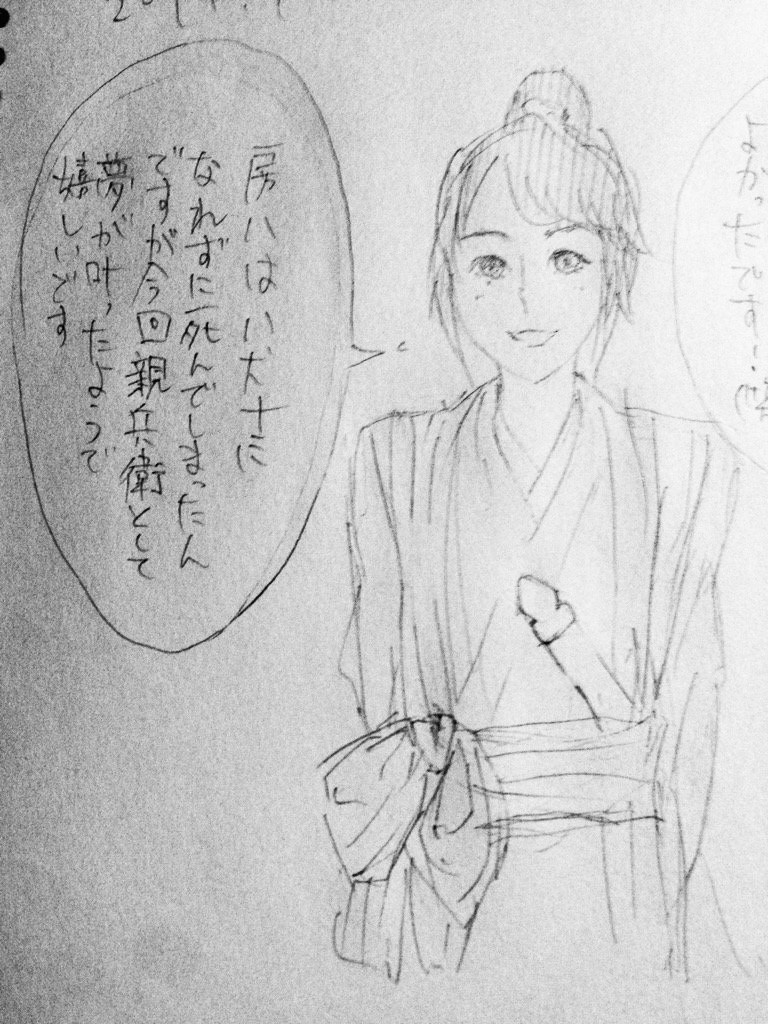 よかったです…
房八は八犬士に
なれずに死んでしまったん
ですが今回親兵衛として
夢が叶ったようで
嬉しいです